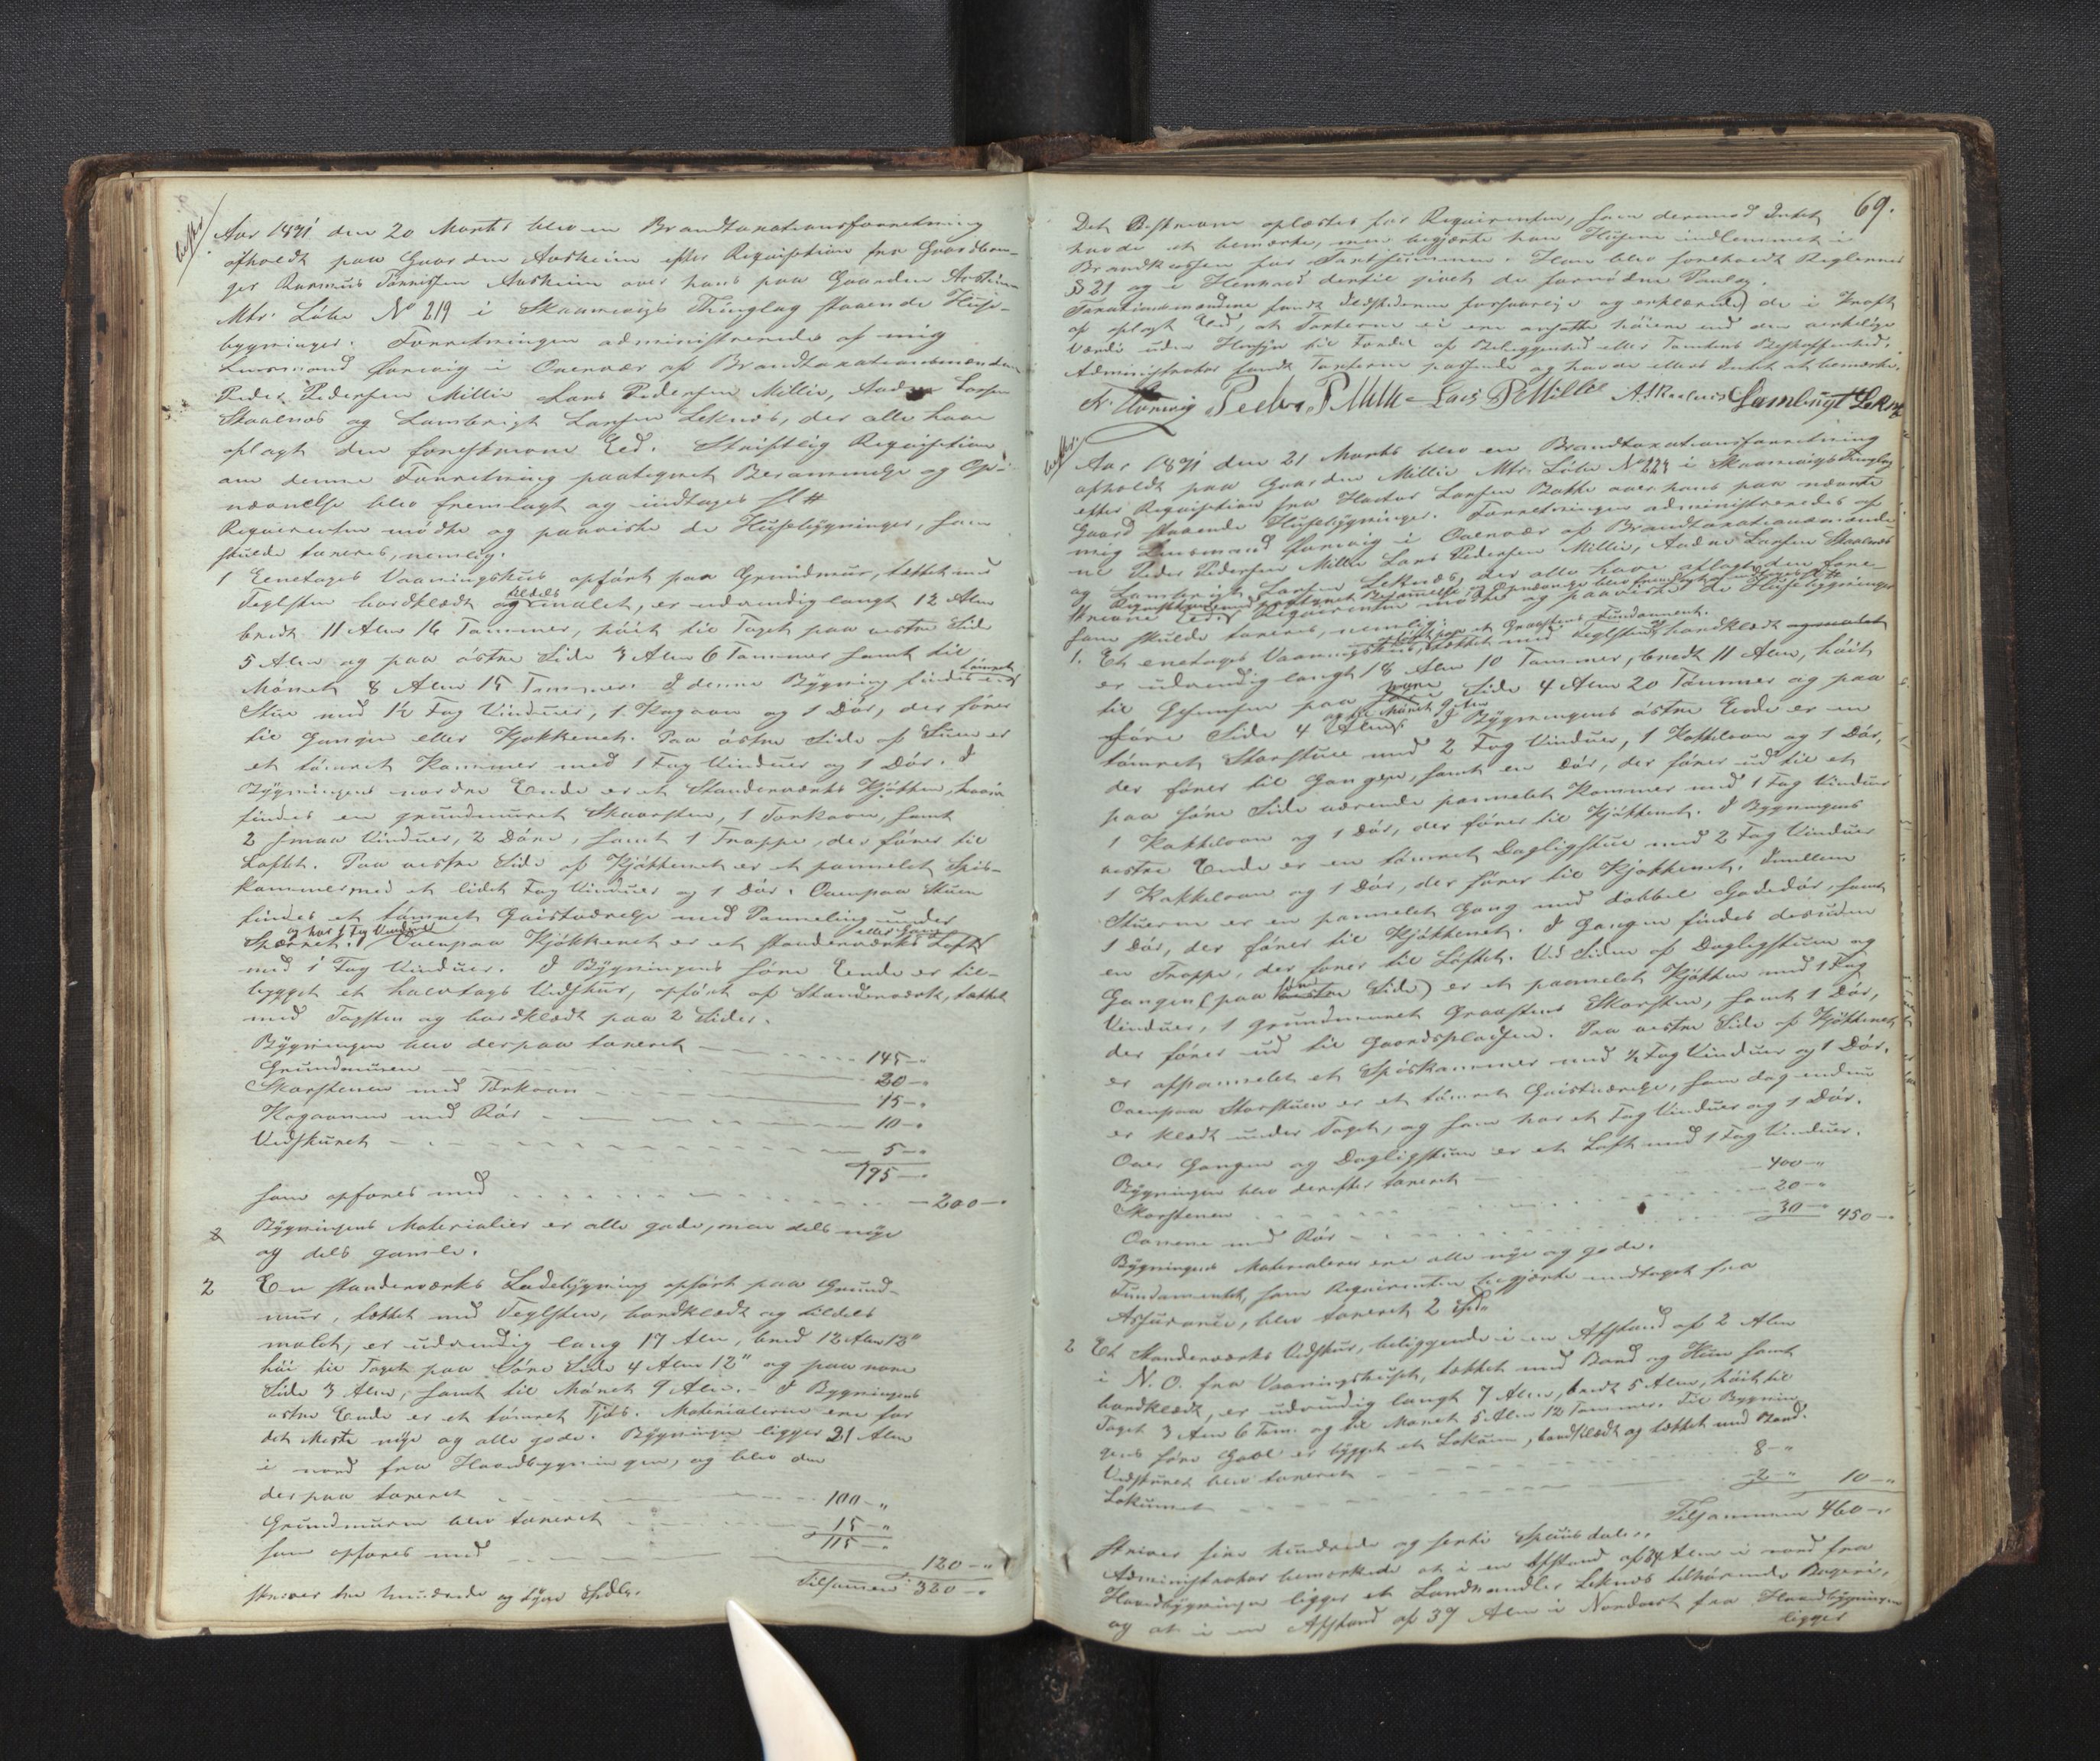 Aar 1871 den 20 Marts blev en Brandtaxationsforretning
afholdt paa Gaarden Auskeim efter Reqvisition fra Gaardbru-
ger Rasmus Tønnisen Auskeim over hans paa Gaarden
Mtr: Løbe No 219 i Skaanevigs Thinglag staaende Huse-
bygninger. Forretningen administreredes af mig
Lensmand i Overvær af Brandtaxationsmændene
Peder Pedersen Millie Lars Pedersen Millie, Andre Larsen
Skaalnes og Lambrigt Larsen Leknes, der alle have
aflagt den foreskrevne Eed. Skriftlig Reqvisition
om denne Forretning paategnet Berammelse og Op-
nævnelse blev fremlagt og indtages sl #
Reqvirenten mødte og paaviste de Husebygninger, som
skulde taxeres, nemlig:
1 Eenetages Vaaningshus opført paa Grundmur, tækket med
Teglsten bordklædt og tildels malet, er udvendig langt 12 Alen
bredt 11 Alen 16 Tommer, høit til Taget paa vestre Side
5 Alen og paa østre Side 3 Alen 6 Tommer samt til
Mønet 8 Alen 15 Tommer. I denne Bygning findes en tømret
Stue med 1½ Fag Vinduer, 1 Kogovn og 1 Dør, der fører
til Gangen eller Kjøkkenet. Paa østre Side af Stuen er
et tømret Kammer med 1 Fag Vinduer og 1 Dør. I
Bygningens nordre Ende er et Standerværks Kjøkken, hvori
findes en grundmuret Skorsten, 1 Torkovn, samt
2 smaa Vinduer, 2 Døre, samt 1 Trappe, der fører til
Loftet. Paa vestre Side af Kjøkkenet er et pannelet Spis-
kammer med et lidet Fag Vinduer og 1 Dør. Ovenpaa Stuen
findes et tømret Gaistværelse med Panneling under
Sperret. og har 1 Fag Vinduer Ovenpaa Kjøkkenet er et standerværks Loft eller Gang
med 1 Fag Vinduer. I Bygningens søre Ende er til-
bygget et halvtags Vedskur, opført af Standerværk, tækket
med Tagsten og bordklædt paa 2 Sider.
Bygningen blev derpaa taxeret 145 - "
Grundmuren 20 - "
Skorstenen med Tørkovn 15 - "
Kogovnen med Rør 10 - "
Vedskuret 5 - "
195 - "
som opføres med 200 - "
Bygningens Materialier er alle gode, men dels nye
og dels gamle.
2 En standerværks Ladebygning opført paa Grund-
mur, tækket med Teglsten, bordklædt og tildels
malet, er udvendig lang 17 Alen, bred 12 Alen 12"
høi til Taget paa søre Side 4 Alen 12" og paa nore
Side 3 Alen, samt til Mønet 9 Alen. - I Bygningens
østre Ende er et tømret Fjøs. Materialerne ere for
det Meste nye og alle gode. Bygningen ligger 21 Alen
i nord fra Hovedbygningen, og blev den
derpaa taxeret 100 - "
Grundmuren blev taxeret 15 - "
115 - "
som opføres med 120 - "
Tilsammen 320 - "
skriver tre hundrede og tyve Spdlr.
69.
Det Beskrevne oplæstes for Reqvirenten, som dermed Intet
havde at bemærke, men begjærte han Husene indlemmet i
Brandkassen for Taxtsummen. Han blev foreholdt Reglerne i
§ 21 og i Henhold dertil givet de fornødne Paalæg.
Taxationsmændene fandt Ildstederne forsvarlige og erklærede de i Kraft
af aflagt Eed, at Taxterne ei ere ansatte høiere end den virkelige
Værdi uden Hensyn til Fordel af Beliggenhed eller Tomtens Beskaffenhed.
Administrator fandt Taxterne passende og havde ellers Intet at bemærke.
Peder P Millie Lars P Millie Lambrigt L Leknes
Aar 1871 den 21 Marts blev en Brandtaxationsforretning
afholdt paa Gaarden Millie Mtr: Løbe No 224 i Skaanevigs Thinglag
efter Reqvisition fra Larsen Bakke over hans paa nævnte
Gaard staaende Husebygninger. Forretningen administreredes af
mig Lensmand i Overvær af Brandtaxationsmænde-
ne Peder Pedersen Millie Lars Pedersen Millie, Andre Larsen Skaalnes
og Lambrigt Larsen Leknes, der alle have aflagt den fore-
skrevne Eed. Reqvirenten mødte og paaviste de Husebygninger
som skulde taxeres, nemlig:
1. Et enetages Vaaningshus, opført paa et Graastens Fundament, tækket med Teglsten, bordklædt og malet
er udvendig langt 18 Alen 10 Tommer, bredt 11 Alen, høit
til Gesimsen paa nore Side 4 Alen 20 Tommer og paa
søre Side 4 Alen og til Mønet 9 Alen. I Bygningens østre Ende er en
tømret Storstue med 2 Fag Vinduer, 1 Kakkelovn og 1 Dør,
der fører til Gangen, samt en Dør, der fører ud til et
paa søre Side værende pannelet Kammer med 1 Fag Vinduer
1 Kakkelovn og 1 Dør, der fører til Kjøkkenet. I Bygningens
vestre Ende er en tømret Dagligstue med 2 Fag Vinduer
1 Kakkelovn og 1 Dør, der fører til Kjøkkenet. Imellem
Stuerne er en pannelet Gang med dobbel Gadedør, samt
1 Dør, der fører til Kjøkkenet. I Gangen findes desuden
en Trappe, der fører til Loftet. Ved Siden af Dagligstuen og
Gangen (paa søre Side) er et pannelet Kjøkken med 1 Fag
Vinduer, 1 grundmuret Graastens Skorsten, samt 1 Dør,
der fører ud til Gaardspladsen. Paa vestre Side af Kjøkkenet
er afpannelet et Spiskammer med ½ Fag Vinduer og 1 Dør.
Ovenpaa Storstuen er et tømret Gaistværelse, som dog endnu
er klædt under Taget, og som har et Fag Vinduer og 1 Dør.
Over Gangen og Dagligstuen er et Loft med 1 Fag Vinduer.
Bygningen blev derefter taxeret 400 - "
Skorstenen 20 - "
Ovnene med Rør 30 - " 450 - "
Bygningens Materialerer ere alle nye og gode.
Fundamentet, som Reqvirenten begjærte undtaget fra
Assurance, blev taxeret 2 Spd.
2 Et Standerværks Vedskur, beliggende i en Afstand af 2 Alen
i N. O. fra Vaaningshuset, tækket med Bord og Hun samt
bordklædt, er udvendig langt 7 Alen, bredt 5 Alen, høit til
Taget 3 Alen 6 Tom. og til Mønet 5 Alen 12 Tommer. Til Bygnin-
gens søre Gavl er bygget et Lokum, bordklædt og tækket med Bord.
Vedskuret blev taxeret 8 - "
Lokumet 2 - " 10 - "
Tilsammen 460 - "
skriver fire hundrede og sexti Speciedaler.
Administrator bemærkede at i en Afstand af 34 Alen i nord fra
Hovedbygningen ligger et Landhandler Leknes tilhørende Bageri,
og at i en Afstand af 39 Alen i Nordvest fra Hovedbygningen
ligger